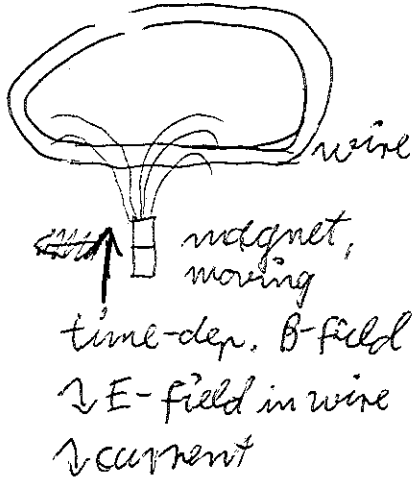 wire
magnet,
moving
time-dep. B-field
↴ E-field in wire
↴ current